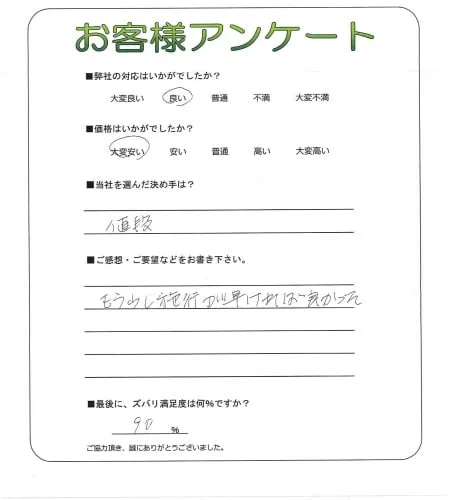 お客様アンケート
■弊社の対応はいかがでしたか？
大変良い 良い 普通 不満 大変不満
■価格はいかがでしたか？
大変安い 安い 普通 高い 大変高い
■当社を選んだ決め手は？
値段
■ご感想・ご要望などをお書き下さい。
もう少し施行が早ければ良かった
■最後に、ズバリ満足度は何%ですか？
90 %
ご協力頂き、誠にありがとうございました。